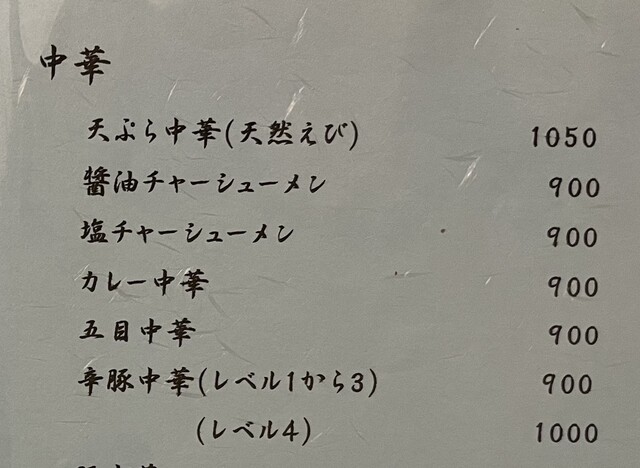 中華
天ぷら中華(天然えび) 1050
醤油チャーシューメン 900
塩チャーシューメン 900
カレー中華 900
五目中華 900
辛豚中華(レベル1から3) 900
(レベル4) 1000